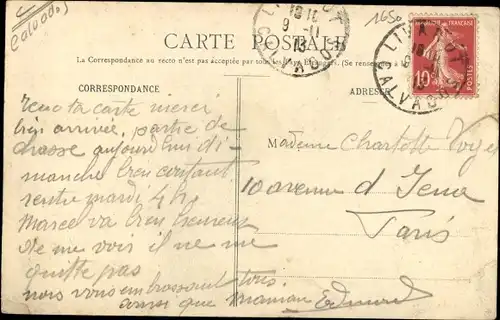 (Calvados)
1650
CARTE POSTALE
La Correspondance au recto n'est pas acceptée par tous les Pays Étrangers. (Se renseigner
CORRESPONDANCE
ADRESSE
LIVAROT
CALVADOS
18
9 -11
13
LIVAROT
CALVADOS
RÉPUBLIQUE FRANÇAISE
10c
POSTES
reçu ta carte merci
bien arrivée, partie de
chasse aujourd'hui di
manche bien contant
rentre mardi 4h
Marcel va bien heureux
de me voir il ne me
quitte pas
nous vous embrassont tous
aussi que maman Edmond
Madame Charlotte
10 avenue d Iena
Paris